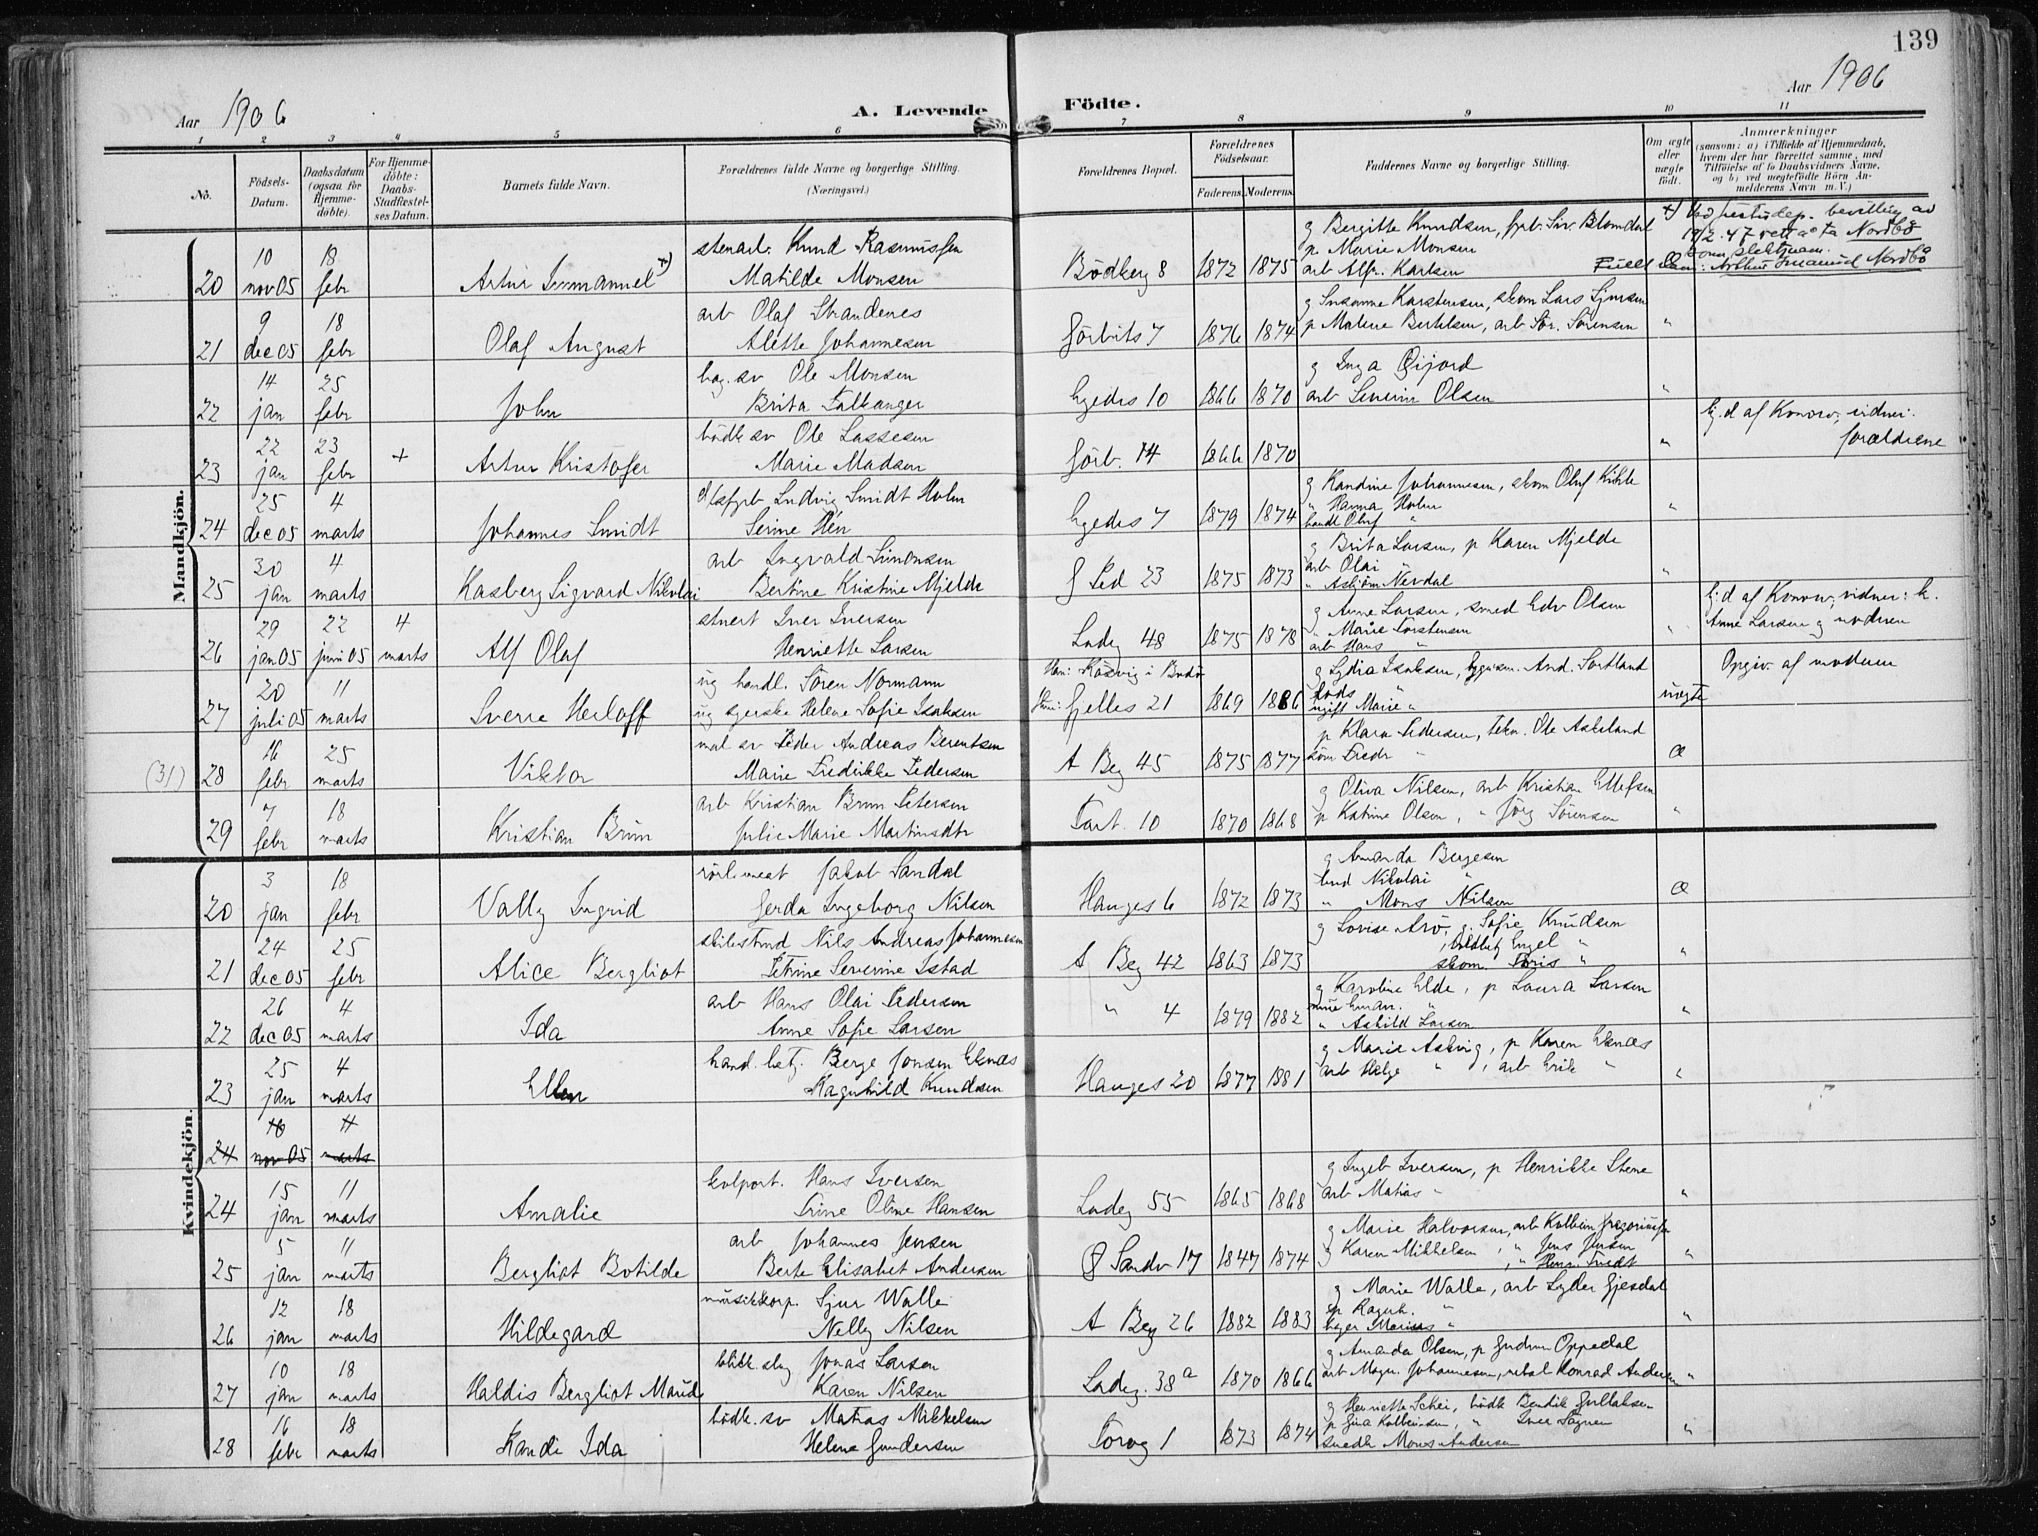 139
Aar 1906
A. Levende Födte.
Aar 1906
1 2 3 4 5 6 7 8 9 10 11
No.
Födsels-Datum.
Daabsdatum (ogsaa for Hjemme-döbte).
For Hjemme-döbte: Daabs-Stadfæstel-ses Datum.
Barnets fulde Navn.
Forældrenes fulde Navne og borgerlige Stilling. (Næringsvei.)
Forældrenes Bopæl.
Forældrenes Födselsaar.
Faderens. Moderens.
Faddernes Navne og borgerlige Stilling.
Om ægte eller uægte födt.
Anmærkninger
(saasom: a) i Tilfælde af Hjemmedaab, hvem der har forrettet samme, med Tilföielse af to Daabsvidners Navne, og b) ved uægtefödte Börn An-melderens Navn m. V.)
Mandkjön.
g Bergitte Knudsen, fyrb. Siv. Blomdal
10 18 stenarb. Knud Rasmussen p Marie Monsen 19/2.47 rett a ta Nordbö
20 nov 05 febr Artur Immanuel +) Matilde Monsen Bödkerg 8 1872 1875 arb Alfr. Karlsen som slektsnavn.
Arthur Imanuel Nordbö
9 18 arb Olaf Strandenes g Susanne Karstensen, skom Lars Sjursen
21 dec 05 febr Olaf August Alette Johannesen Görbits 7 1876 1874 p Malene Bertelsen, arb Sör. Sörensen "
14 25 bag. sv Ole Monsen g Inga Öijord
22 jan febr John Brita Falkanger Egedes 10 1866 1870 arb Severin Olsen "
22 23 bödk sv Ole Lassesen hj. d af Konow; vidner:
23 jan febr + Artur Kristofer Marie Madsen Görb. 14 1866 1870 " forældrene
25 4 Ludvig Smidt Holm g Kandine Johannesen, skom Oluf Kikle
24 dec 05 marts Johannes Smidt Serine Hén Egedes 7 1879 1874 " Hanna Holm "
handl Oluf "
30 4 arb Ingvald Simonsen g Brita Larsen, p Karen Mjelde
25 jan marts Kasberg Sigvard Nikolai Bertine Kristine Mjelde 23 1875 1873 arb Olai "
" Asbjörn Nævdal
29 22 4 stuert Iver Iversen g Anne Larsen, smed Edv Olsen hj. d af Konow; vidner: h.
26 jan 05 juni 05 marts Alf Olaf Henriette Larsen Ladeg 48 1875 1878 " Marie Torstensen " Anne Larsen g moderen
arb Hans "
20 11 ug handl. Sören Normann i Bodö g Lydia Isaksen, And. Sortland Opgiv. af moderen
27 juli 05 marts Sverre Herloff ug syerske Helene Sofie Isaksen Gjelles 21 1869 1886 ugift Marie " uægte
16 25 mal sv Peder Andreas Berentsen p Klara Pedersen, Ole Askeland
(31) 28 febr marts Viktor Marie Fredrikke Pedersen A Beg 45 1875 1877 söm Fredr " æ
7 18 arb Kristian Brun Petersen g Oliva Nilsen, arb Kristian Ellefsen
29 febr marts Kristian Brun Julie Marie Martinsdtr Tart. 10 1870 1868 p Katrine Olsen, " Jörg Sörensen "
Kvindekjön.
3 18 Jakob Sandal g Amanda Bergesen
20 jan febr Vally Ingrid Gerda Ingeborg Nilsen Hauges 6 1872 1873 Nikolai " æ
" Mons Nilsen
24 25 Nils Andreas Johannesen g Lovise Arö, g. Sofie Knudsen
21 dec 05 febr Alice Bergliot Petrine Severine Istad A Beg 42 1863 1873 Engel " "
skom. "
26 4 arb Hans Olai Pedersen g Karoline Elde, p Laura Larsen
22 dec 05 marts Ida Anne Sofie Larsen " 4 1879 1882 " Askild Larsen "
25 4 hand. betj. Berge Jonsen Eknæs g Marie Askvig, p Karen Eknæs
23 jan marts Ellen Ragnhild Knudsen Hauges 20 1877 1881 arb Helge " , arb Erik " "
16 11
24 nov 05 marts
15 11 kolport. Hans Iversen g Ingeb Iversen, p Henrikke Stene
24 jan marts Amalie Trine Oline Hansen Ladeg 55 1865 1868 arb Matias " "
5 11 arb Johannes Jensen g Marie Halvorsen, arb Kolbein Gregoriussen
25 jan marts Bergliot Botilde Berte Elisabet Andersen Ø Sandv 17 1847 1874 g Karen Mikkelsen, " Jens Jensen "
, " Henr. Tvedt
12 18 musikkorp. Sjur Walle g Marie Walle, arb Lyder Gjesdal
26 jan marts Hildegard Nelly Nilsen A Beg 26 1882 1883 sp Ragnh. " "
bager Marius "
10 18 blikk.slg Jonas Larsen g Amanda Olsen, p Gudrun Oppedal
27 jan marts Haldis Bergliot Maude Karen Nilsen Ladeg. 38a 1870 1866 arb Magn. Johannesen, Konrad Andersen "
16 18 bödk. sv Matias Mikkelsen g Henriette Schei, bödk Bendik Gullaksen
28 febr marts Kandi Ida Helene Gundersen Torvg 1 1873 1874 p Gina Kolbeinsen, " Iver Sagnen "
snedk Mons Andersen